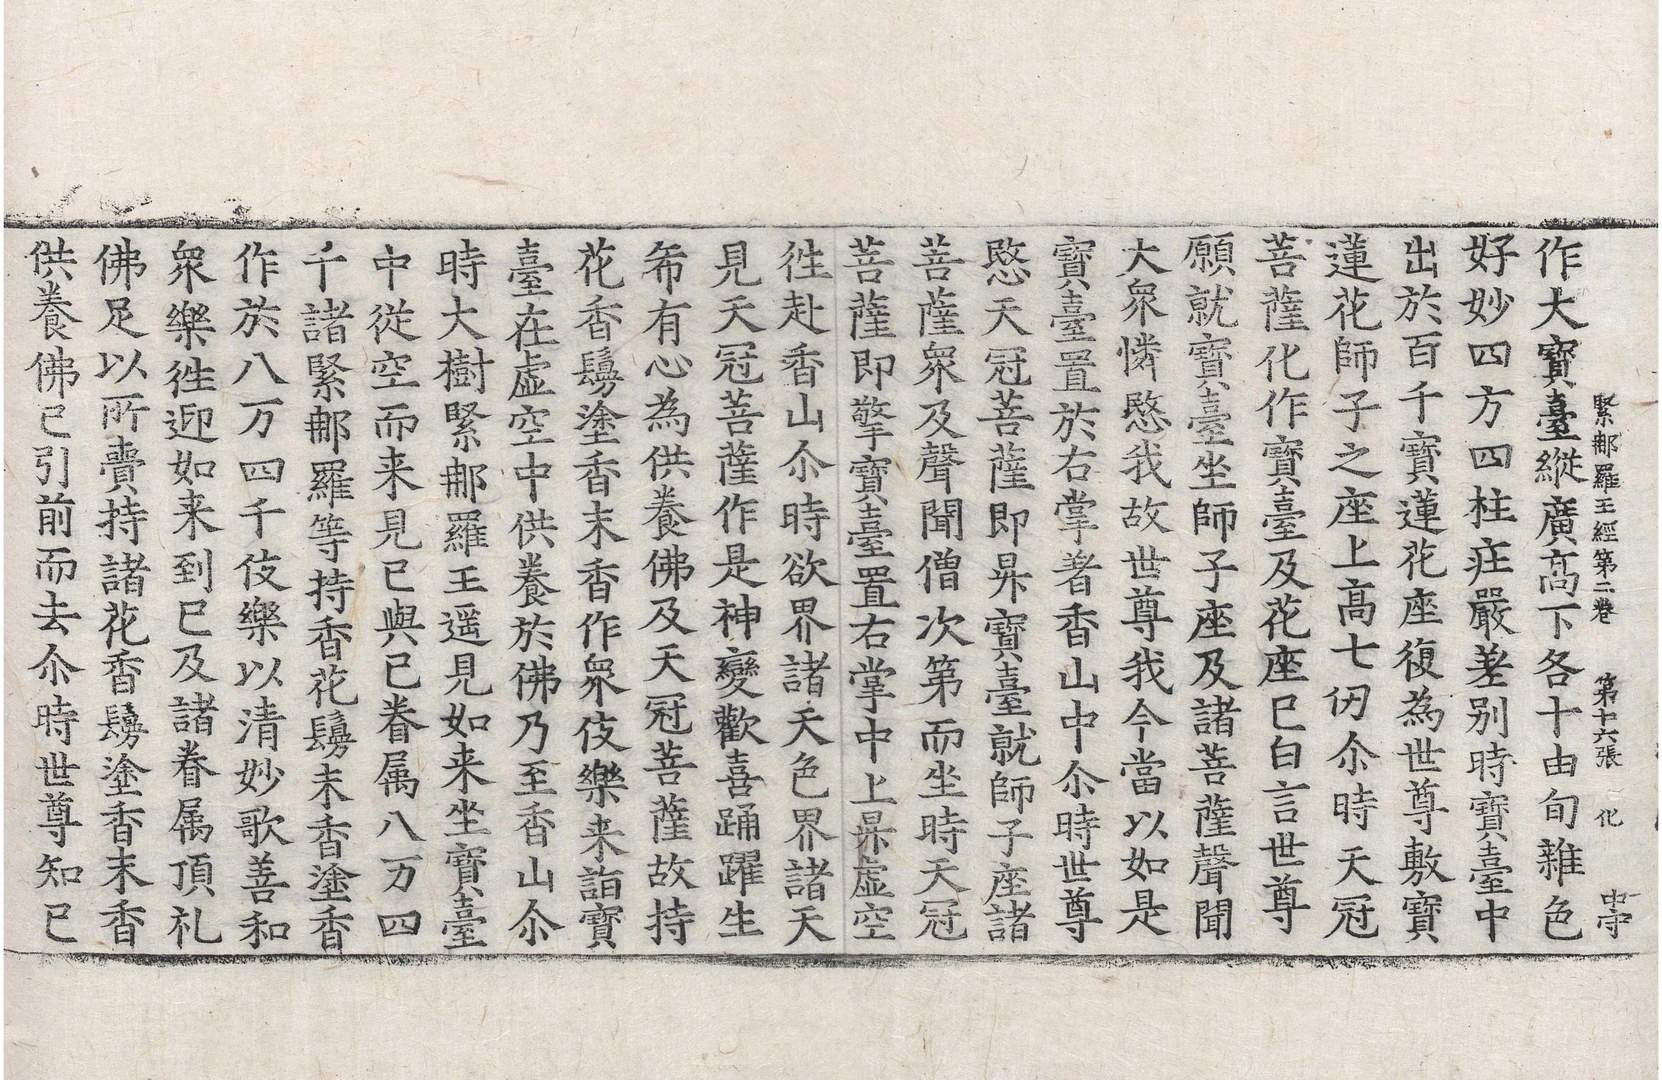 緊𨙻羅王經第二卷 第十六張 化 中守
作大寶臺縱廣高下各十由旬雜色
好妙四方四柱庄嚴差別時寶臺中
出於百千寶蓮花座復為世尊敷寶
蓮花師子之座上高七仞尒時天冠
菩薩化作寶臺及花座已白言世尊
願就寶臺坐師子座及諸菩薩聲聞
大衆憐愍我故世尊我今當以如是
寶臺置於右掌著香山中尒時世尊
愍天冠菩薩即昇寶臺就師子座諸
菩薩衆及聲聞僧次第而坐時天冠
菩薩即擎寶臺置右掌中上昇虛空
徃赴香山尒時欲界諸天色界諸天
見天冠菩薩作是神變歡喜踊躍生
希有心為供養佛及天冠菩薩故持
花香鬘塗香末香作衆伎樂来詣寶
臺在虛空中供養於佛乃至香山尒
時大樹緊𨙻羅王遥見如来坐寶臺
中從空而来見已與己眷属八万四
千諸緊𨙻羅等持香花鬘末香塗香
作於八万四千伎樂以清妙歌善和
衆樂徃迎如来到已及諸眷属頂礼
佛足以所賷持諸花香鬘塗香末香
供養佛已引前而去尒時世尊知已